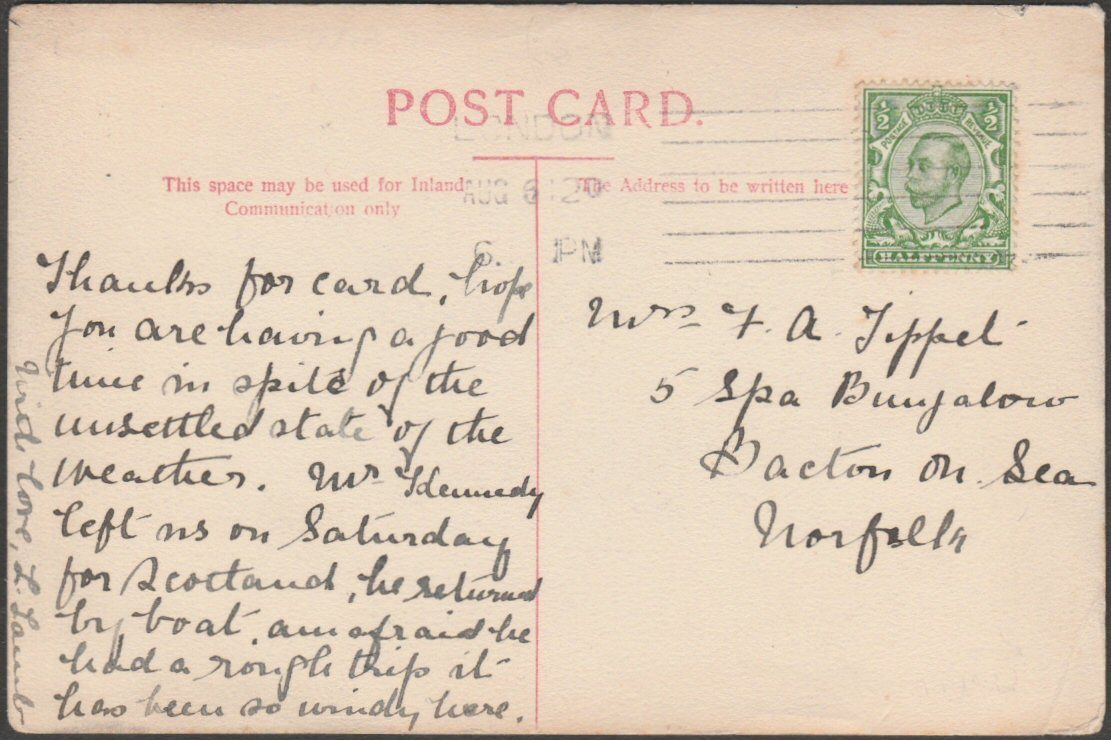 POST CARD.
LONDON
AUG 6 12
6. PM
This space may be used for Inland
Communication only
The Address to be written here
1/2 1/2
POSTAGE REVENUE
HALFPENNY
Thanks for card, hope
you are having a good
time in spite of the
unsettled state of the
weather. Mr Kennedy
left us on Saturday
for Scotland, he returned
by boat, am afraid he
had a rough trip it
has been so windy here.
With love, L. Lamb
Mrs F. A. Tippet
5 Spa Bungalow
Bacton on Sea
Norfolk